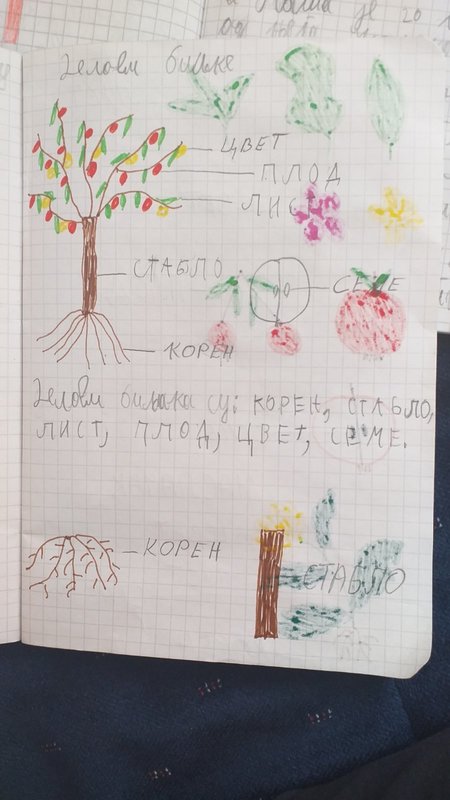 Делови биљке
ЦВЕТ
ПЛОД
ЛИСТ
СТАБЛО
СЕМЕ
КОРЕН
Делови биљака су: КОРЕН, СТАБЛО,
ЛИСТ, ПЛОД, ЦВЕТ, СЕМЕ.
КОРЕН
СТАБЛО